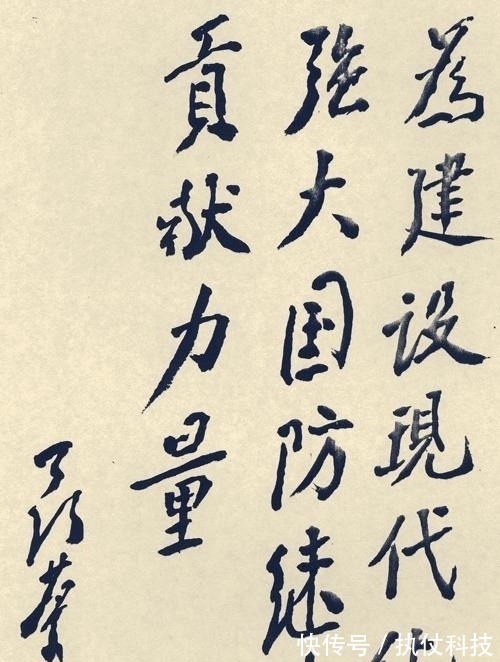 為建設現代
強大国防継
貢献力量
快传号/执仗科技